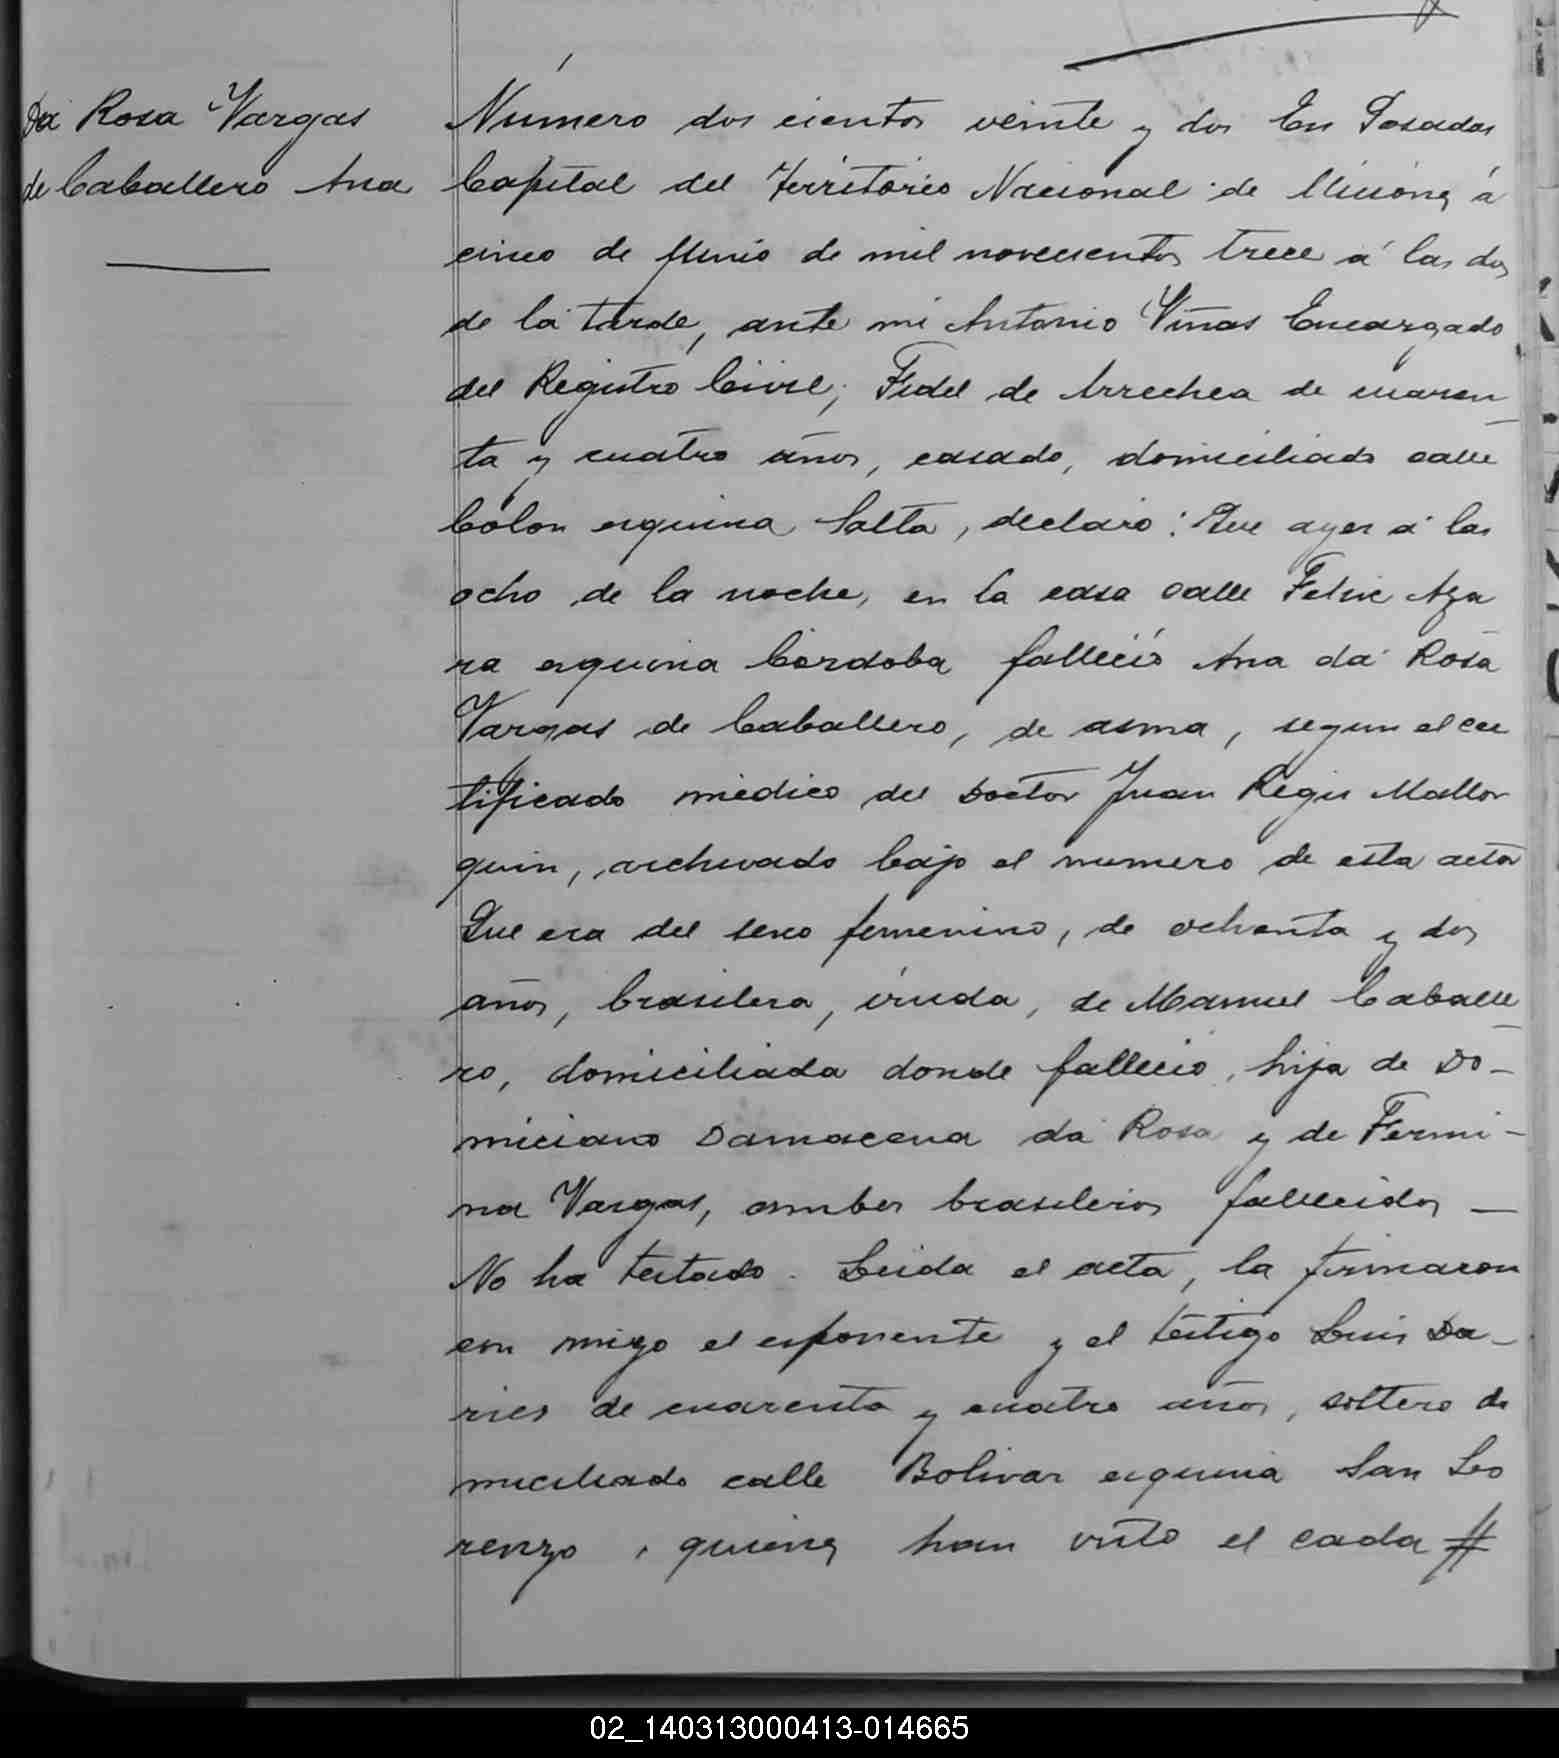 Da Rosa Vargas
de Caballero Ana
Número dos cientos veinte y dos En Posadas
Capital del Territorio Nacional de Misiones á
cinco de Junio de mil novecientos trece á las dos
de la tarde, ante mi Antonio Viñas Encargado
del Registro Civil; Fidel de Arrechea de cuaren
ta y cuatro años, casado, domiciliado calle
Colon esquina Salta, declaró: Que ayer á las
ocho de la noche, en la casa calle Felix Aza
ra esquina Córdoba falleció Ana da Rosa
Vargas de Caballero, de asma, segun el cer
tificado médico del Doctor Juan Regis Mallor
quin, archivado bajo el numero de esta acta
Que era del sexo femenino, de ochenta y dos
años, brasilera, viuda, de Manuel Caballe
ro, domiciliada donde falleció, hija de Do-
miciano Damacena da Rosa y de Fermi-
na Vargas, ambos brasileros fallecidos —
No ha testado. Leida el acta, la firmaron
con migo el esponente y el testigo Luis Da-
ries de cuarenta y cuatro años, soltero do
miciliado calle Bolivar esquina San Lo
renzo, quienes han visto el cada #
02_140313000413-014665